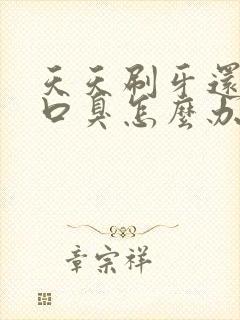 天天刷牙還
口臭怎麼办
章宗祥